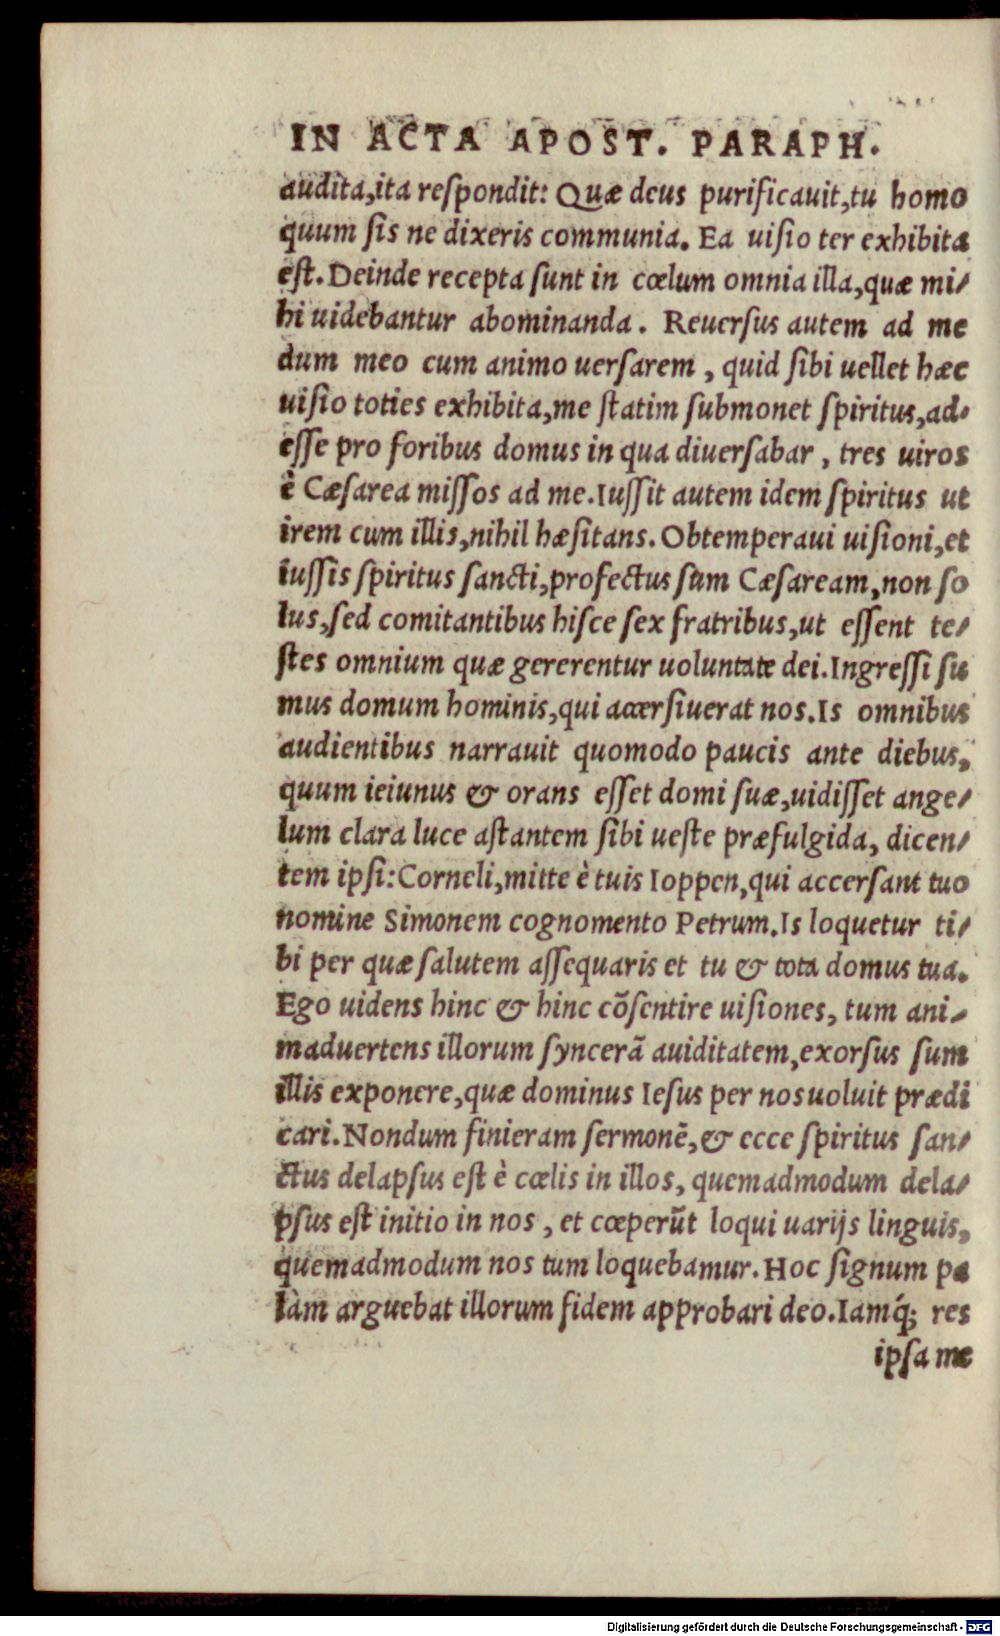 IN ACTA APOST. PARAPH.
audita,ita reſpondit: Quæ deus purificauit,tu homo
quum ſis ne dixeris communia. Ea uiſio ter exhibita
eſt. Deinde recepta ſunt in cœlum omnia illa,quæ mi/
hi uidebantur abominanda. Reuerſus autem ad me
dum meo cum animo uerſarem, quid ſibi uellet hæc
uiſio toties exhibita,me ſtatim ſubmonet ſpiritus,ad/
eſſe pro foribus domus in qua diuerſabar, tres uiros
è Cæſarea miſſos ad me. Iuſſit autem idem ſpiritus ut
irem cum illis,nihil hæſitans. Obtemperaui uiſioni,et
iuſſis ſpiritus ſancti,profectus ſum Cæſaream,non ſo
lus,ſed comitantibus hiſce ſex fratribus,ut eſſent te/
ſtes omnium quæ gererentur uoluntate dei. Ingreſſi ſu
mus domum hominis,qui accerſiuerat nos. Is omnibus
audientibus narrauit quomodo paucis ante diebus,
quum ieiunus & orans eſſet domi ſuæ,uidiſſet ange/
lum clara luce aſtantem ſibi ueſte præfulgida, dicen/
tem ipſi: Corneli,mitte è tuis Ioppen,qui accerſant tuo
nomine Simonem cognomento Petrum. Is loquetur ti/
bi per quæ ſalutem aſſequaris et tu & tota domus tua.
Ego uidens hinc & hinc cõſentire uiſiones, tum ani/
maduertens illorum ſyncerã auiditatem,exorſus ſum
illis exponere,quæ dominus Ieſus per nos uoluit prædi
cari. Nondum finieram ſermonẽ,& ecce ſpiritus ſan/
ctus delapſus eſt è cœlis in illos, quemadmodum dela/
pſus eſt initio in nos, et cœperũt loqui uarijs linguis,
quemadmodum nos tum loquebamur. Hoc ſignum pa
làm arguebat illorum fidem approbari deo. Iamq́; res
ipſa me
Digitalisierung gefördert durch die Deutsche Forschungsgemeinschaft - DFG